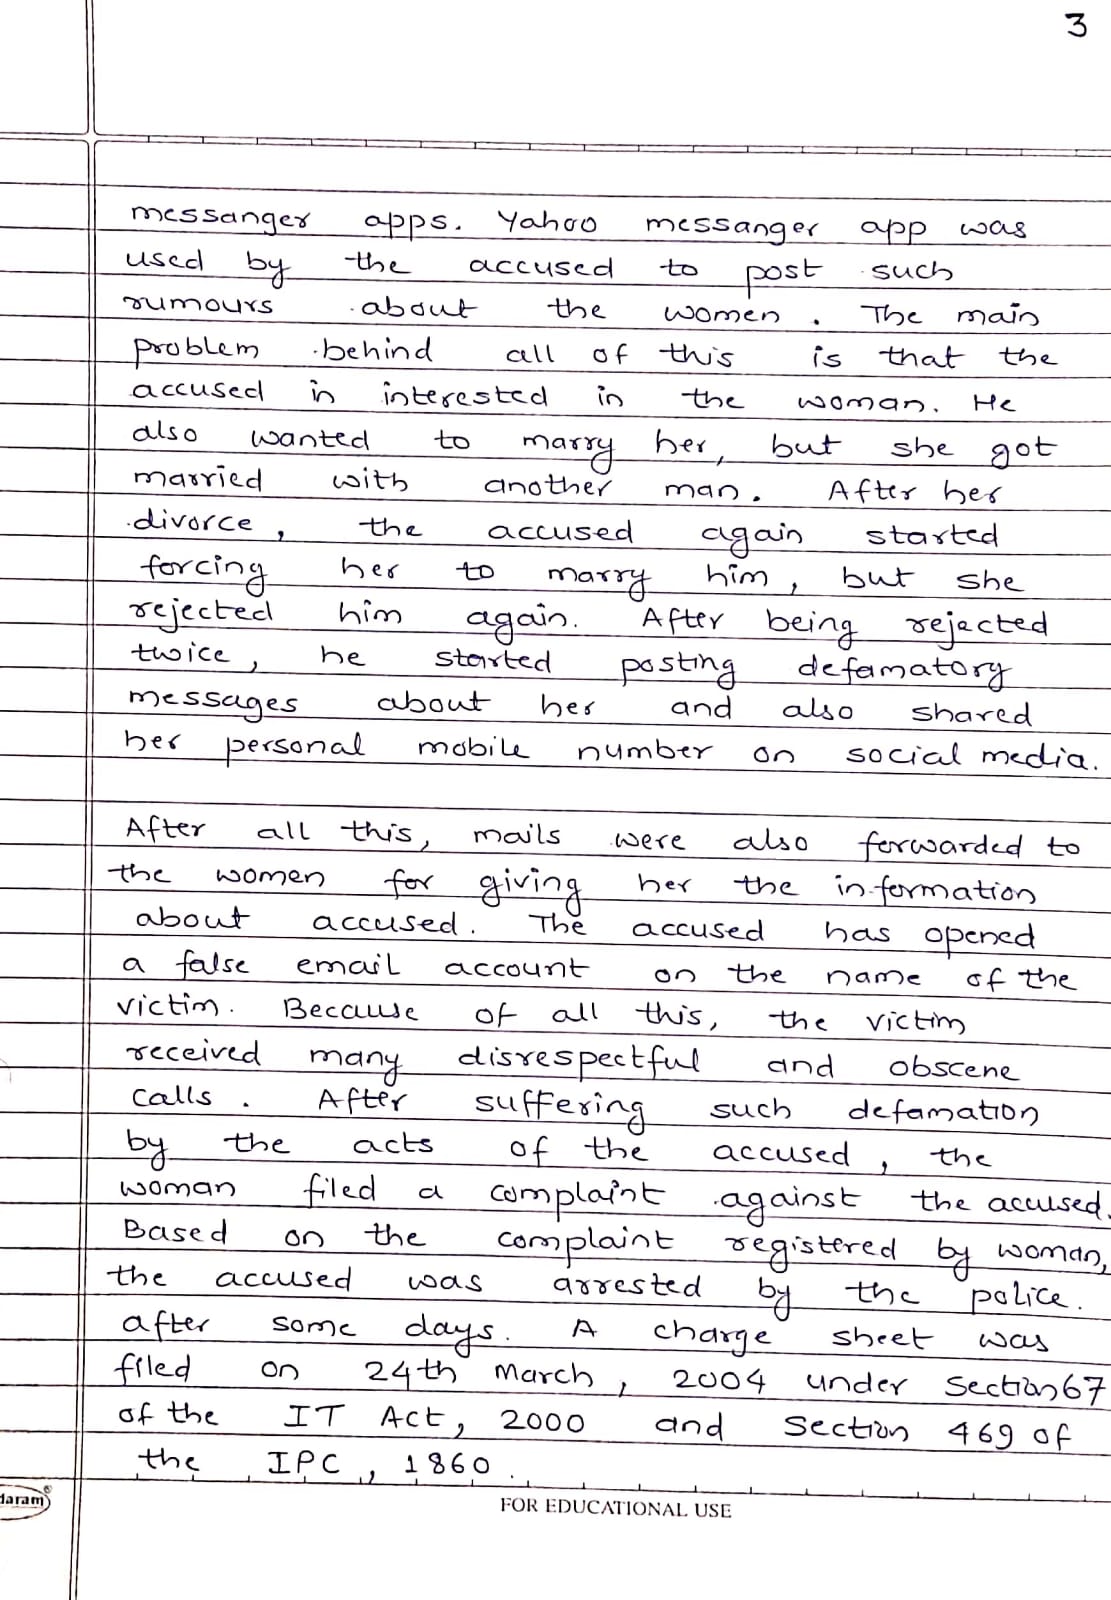 3
messanger apps. Yahoo messanger app was
used by the accused to post such
rumours about the women. The main
problem behind all of this is that the
accused in interested in the woman. He
also wanted to marry her, but she got
married with another man. After her
divorce, the accused again started
forcing her to marry him, but she
rejected him again. After being rejected
twice, he started posting defamatory
messages about her and also shared
her personal mobile number on social media.
After all this, mails were also forwarded to
the women for giving her the information
about accused. The accused has opened
a false email account on the name of the
victim. Because of all this, the victim
received many disrespectful and obscene
calls. After suffering such defamation
by the acts of the accused, the
woman filed a complaint against the accused.
Based on the complaint registered by woman,
the accused was arrested by the police.
after some days. A charge sheet was
filed on 24th March, 2004 under Section 67
of the IT Act, 2000 and Section 469 of
the IPC, 1860.
daram®
FOR EDUCATIONAL USE